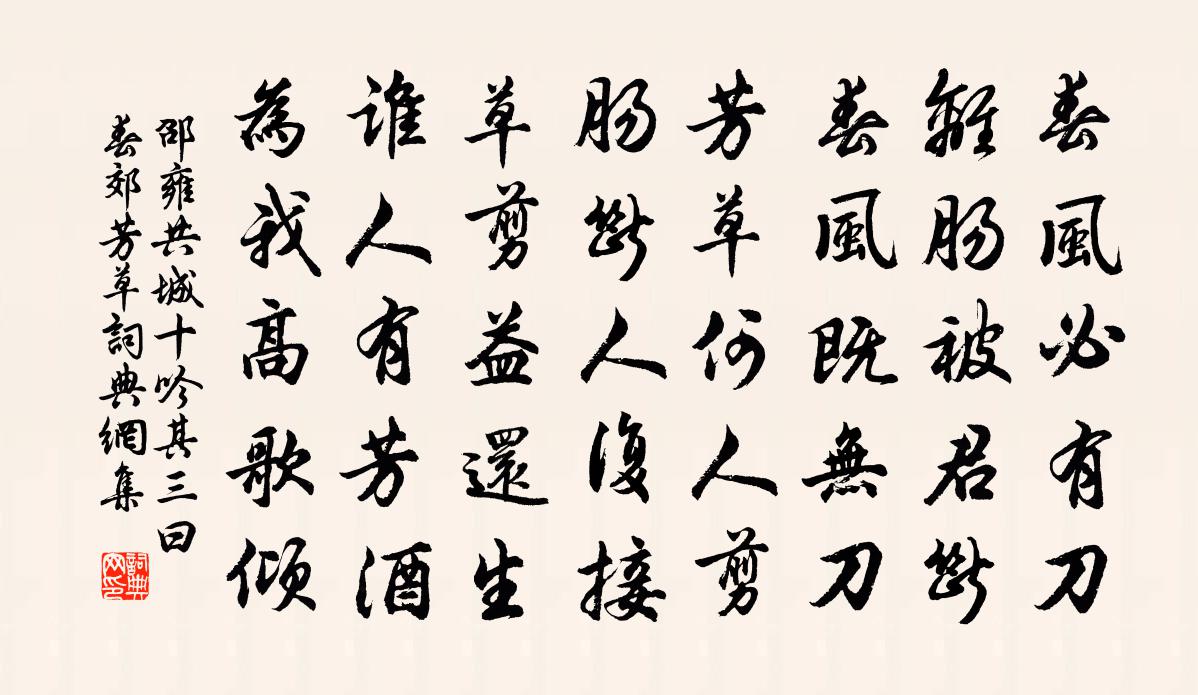 春風必有刀
離腸被君斷
春風既無刀
芳草何人剪
腸斷人復接
草剪益還生
誰人有芳酒
為我高歌傾
邵雍共城十吟其三曰
春郊芳草詞典網集
詞典
网印